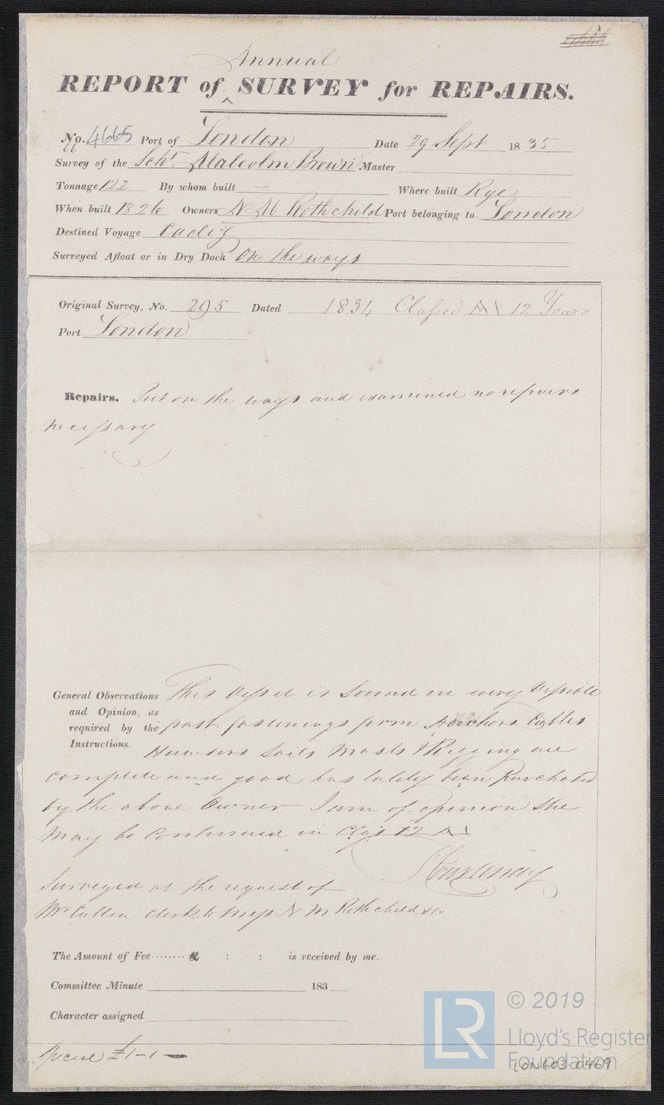 Annual
REPORT of ^ SURVEY for REPAIRS.
No. 4665 Port of London Date 29 Sept 1835
66
Survey of the Schr Malcolm Brown Master
Tonnage 122 By whom built — Where built Rye
When built 1826 Owners N M Rothchild Port belonging to London
Destined Voyage Cadiz
Surveyed Afloat or in Dry Dock On the ways
Original Survey, No. 295 Dated 1834 Classed A1 12 Years
Port London
Repairs. Put on the ways and examined no repairs
necessary
General Observations and Opinion, as required by the Instructions.
This Vessel is Sound in every Visible
part fastenings firm Anchors Cables
Hawsers Sails Masts & Rigging are
complete and good has lately been Purchased
by the above Owner I am of opinion She
May be Continued in Class 12 A1
Surveyed at the request of
Mr Cullen clerk to Messrs N M Rothchild &
The Amount of Fee ........ £ : : is received by me.
Committee Minute 183
Character assigned
Special £1-1-
LR
© 2019
Lloyd's Register
Foundation
LON603-0469